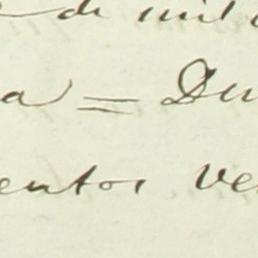 de mil
a = Du
entos ve